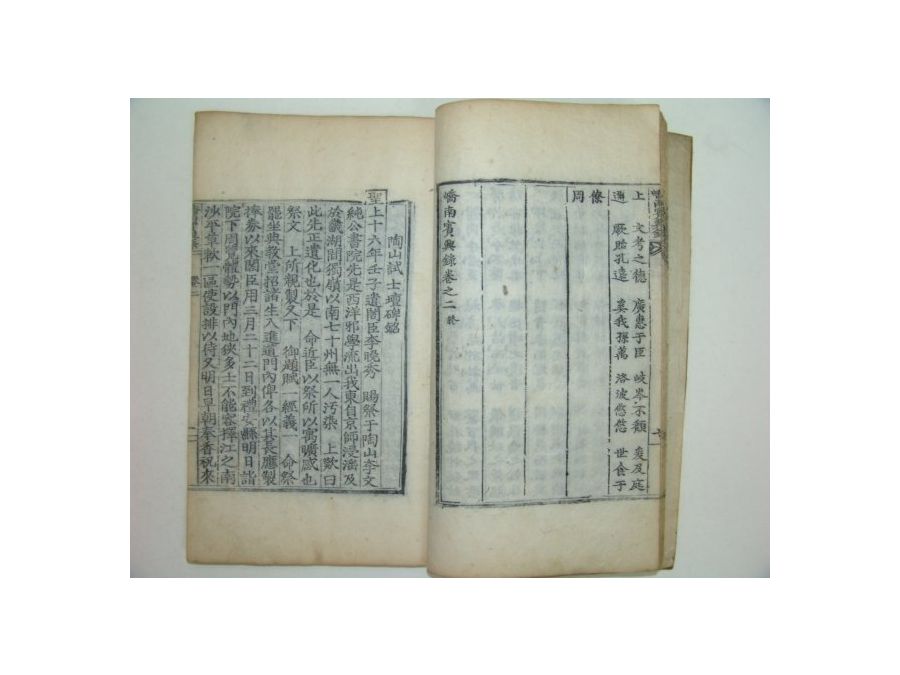 上 文考之德 廣惠于臣 岐岑不頹 爰及庭
遹 厥貽孔遠 裳我孫萬 洛波悠悠 世食于
僚
周
嶠南賓興錄卷之二 終
陶山試士壇碑銘
聖上十六年壬子遣閣臣李晚秀 賜祭于陶山李文
純公書院先是西洋邪學流出我東自京師浸淫及
於畿湖間獨嶺以南七十州無一人汚染 上歎曰
此先正遺化也於是 命近臣以祭所以寓曠感也
祭文 上所親製又下 御題賦一經義一 命祭
罷坐典敎堂招諸生入進道門內俾各以其長應製
捧券以來閣臣用三月二十二日到禮安縣明日詣
院下周覽體勢以門內地狹多士不能容擇江之南
沙平章敞一區使設排以待又明日早朝奉香祝來